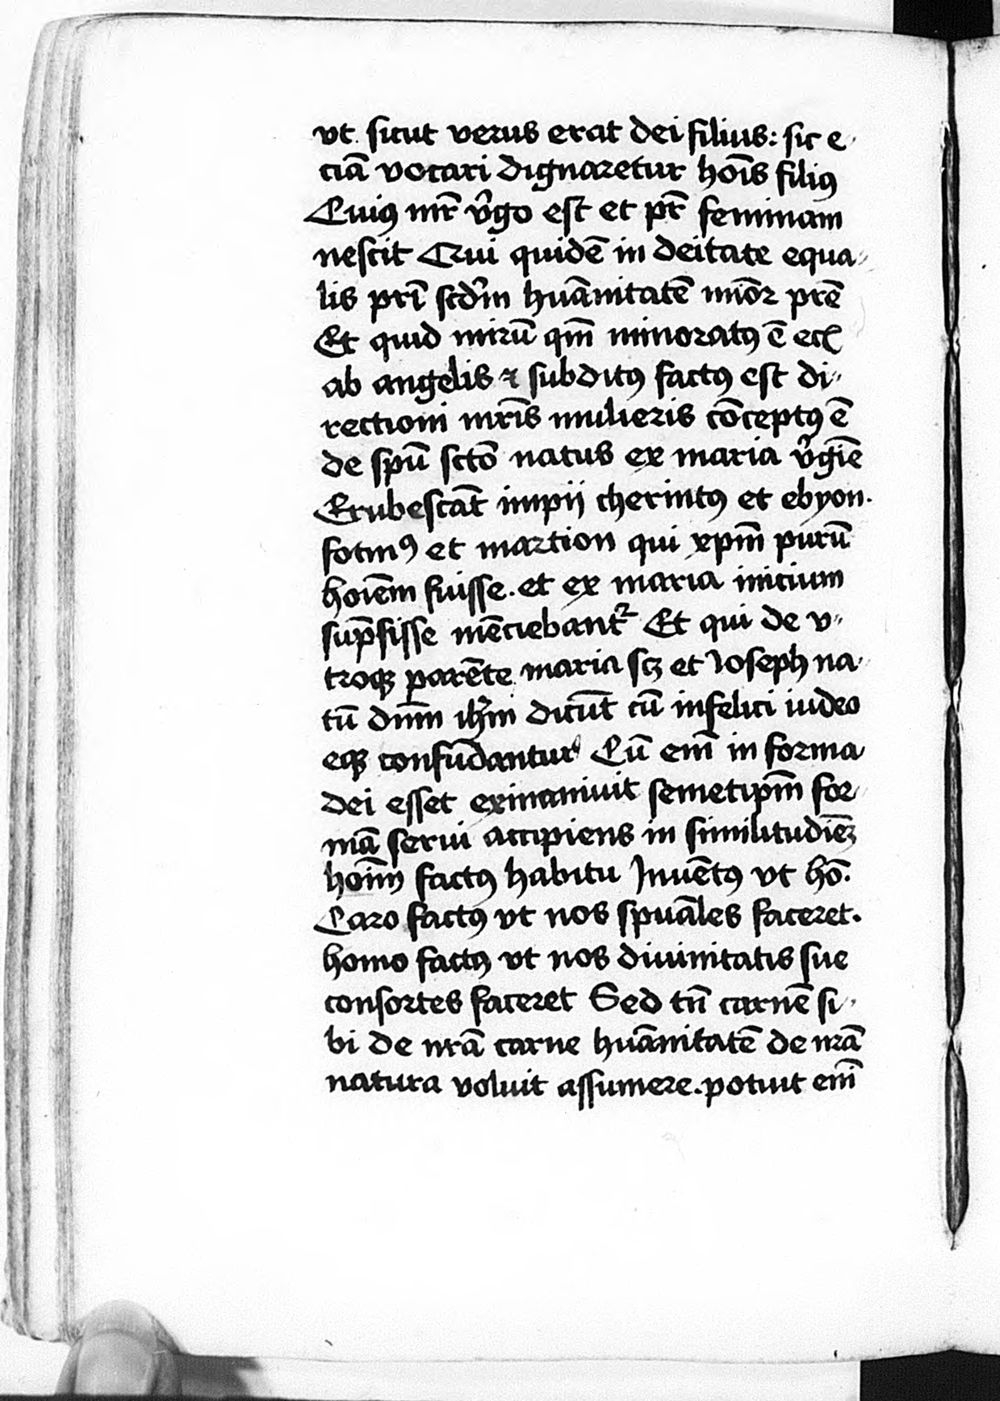 vt sicut verus erat dei filius: sic e-
ciā vocari dignaretur hoīs filiꝰ
Cuiꝰ mr̄ v̓go est et pr̄ feminam
nescit Qui quidē in deitate equa-
lis prī scd̓m huāmitatē mīor prē
Et quid mirū qm̄ minoratꝰ ē eciā
ab angelis ⁊ subditꝰ factꝰ est di-
rectioni mr̄is mulieris cōceptꝰ ē
de spū sctō natus ex maria v̓gīe
Erubescāt impij cherintꝰ et ebyon.
fotinꝰ et martion qui xp̄m purū
hoīem fuisse. et ex maria inicium
sūpsisse mēciebantᷣ Et qui de v-
troqꝫ parēte maria scꝫ et Ioseph na-
tū dn̄m ih̄m dicūt cū infelici iudeo
eqꝫ confūdantur Cū em̄ in forma
dei esset exinaniuit semetip̄m for-
mā serui accipiens in similitudīeꝫ
hoīm factꝰ habitu Inuētꝰ vt hō.
Caro factꝰ vt nos spūales faceret.
homo factꝰ vt nos diuinitatis sue
consortes faceret Sed tn̄ carnē si-
bi de nr̄a carne huāmitatē de nr̄a
natura voluit assumere. potuit em̄